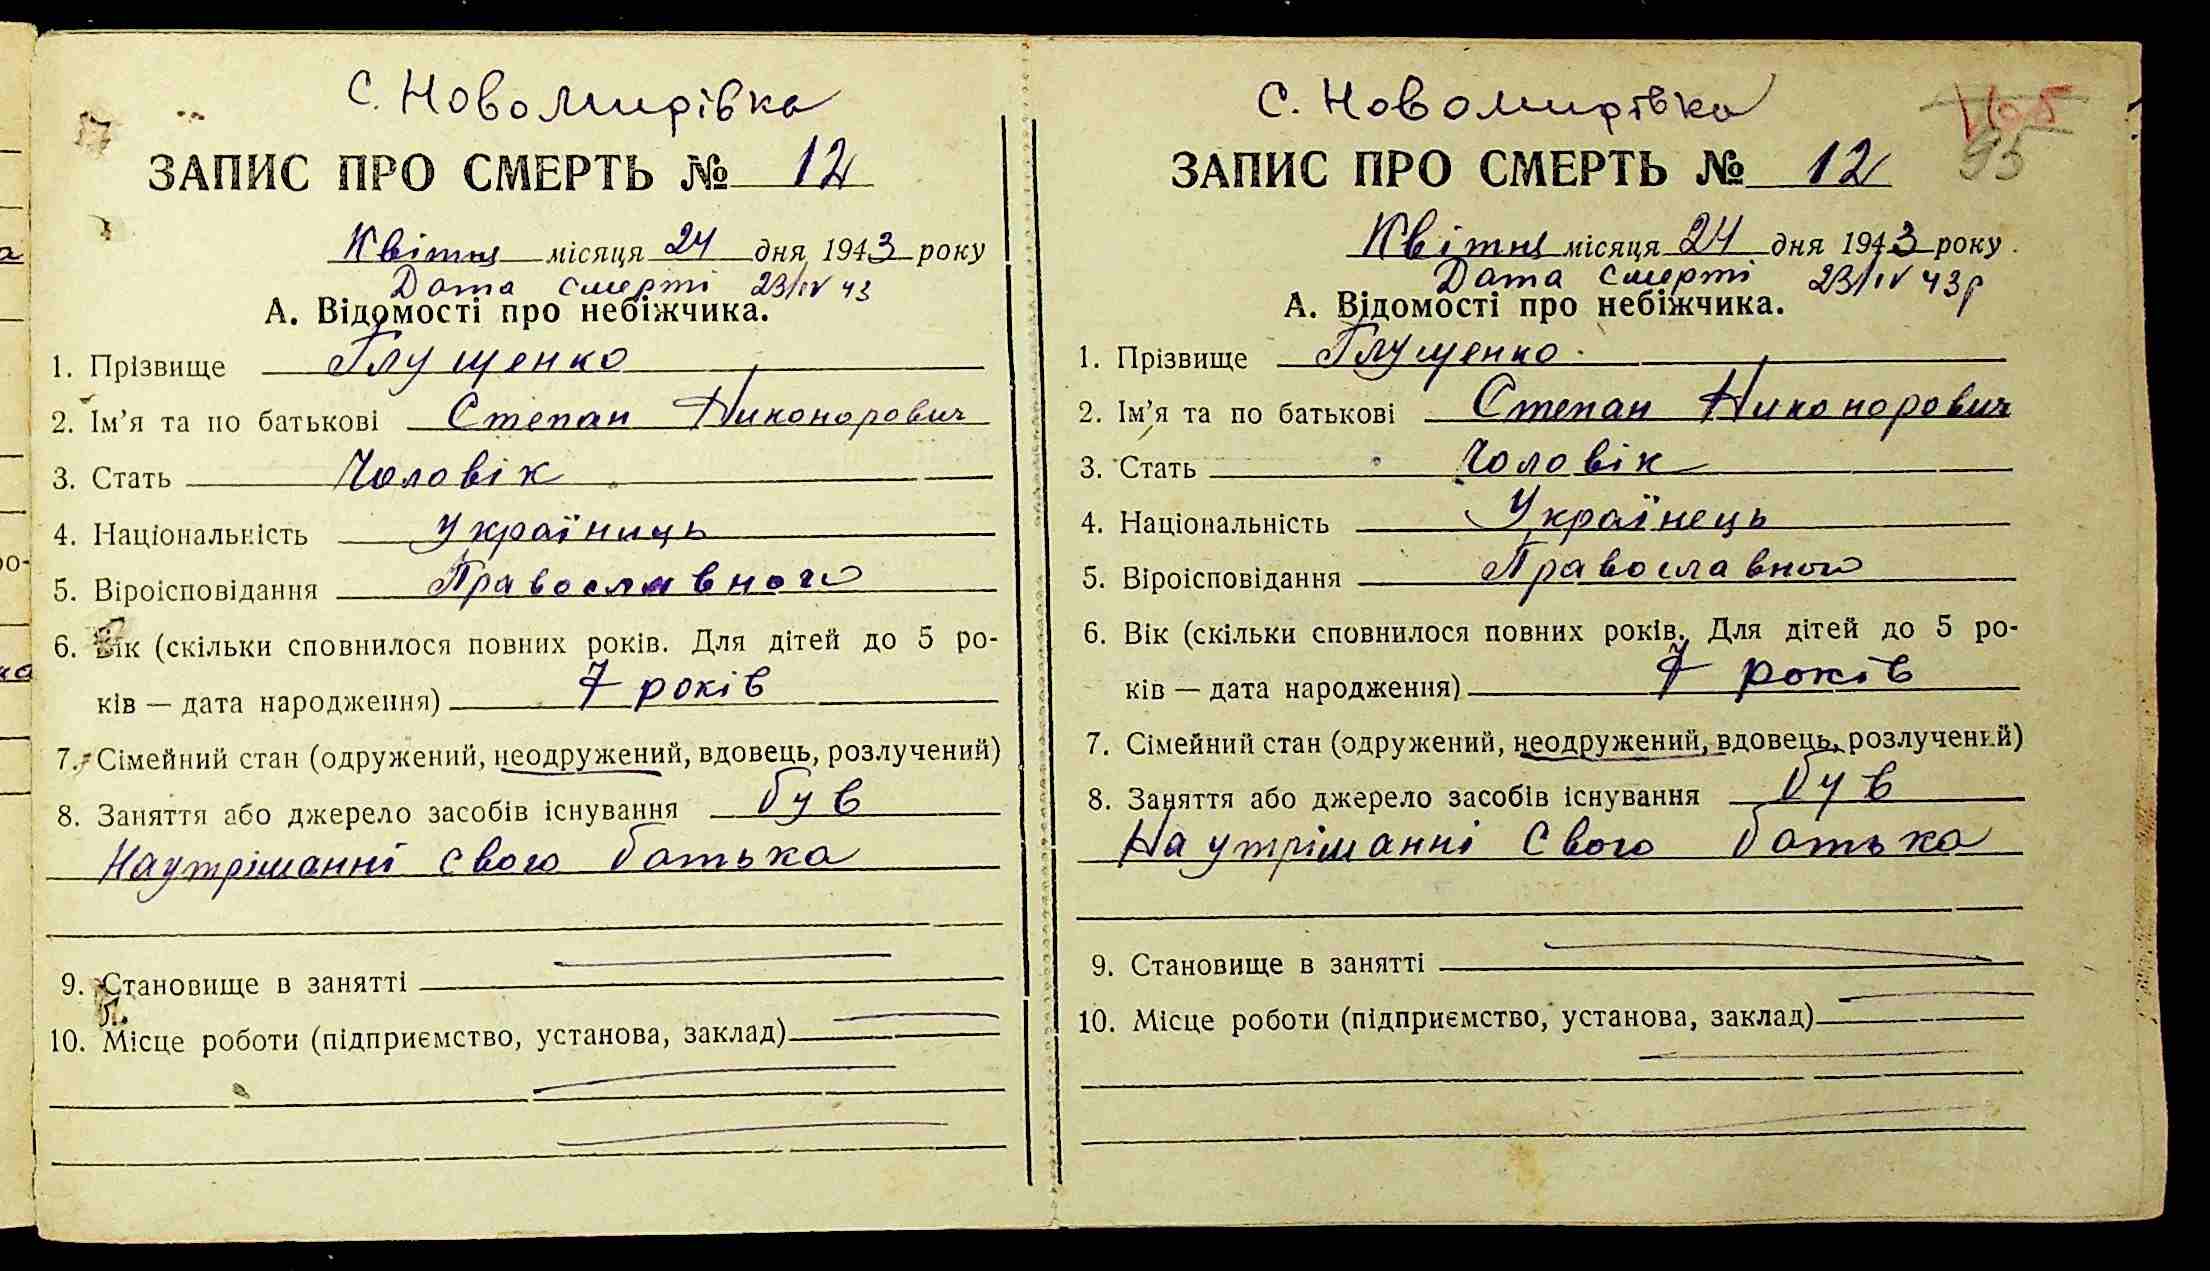 с. Новомифівка
ЗАПИС ПРО СМЕРТЬ № 12
Квітня місяця 24 дня 1943 року
Дата смерті 23/IV 43
А. Відомості про небіжчика.
1. Прізвище Глущенко
2. Ім’я та по батькові Степан Никонорович
3. Стать Чоловік
4. Національність Україниць
5. Віроісповідання Православного
6. Вік (скільки сповнилося повних років. Для дітей до 5 ро-
ків — дата народження) 7 років
7. Сімейний стан (одружений, неодружений, вдовець, розлучений)
8. Заняття або джерело засобів існування був
На утріманні свого батька
9. Становище в занятті
10. Місце роботи (підприємство, установа, заклад)
с. Новомифівка
95
ЗАПИС ПРО СМЕРТЬ № 12
Квітня місяця 24 дня 1943 року
Дата смерті 23/IV 43р
А. Відомості про небіжчика.
1. Прізвище Глущенко
2. Ім’я та по батькові Степан Никонорович
3. Стать Чоловік
4. Національність Українець
5. Віроісповідання Православного
6. Вік (скільки сповнилося повних років. Для дітей до 5 ро-
ків — дата народження) 7 років
7. Сімейний стан (одружений, неодружений, вдовець, розлучений)
8. Заняття або джерело засобів існування був
На утріманні свого батька
9. Становище в занятті
10. Місце роботи (підприємство, установа, заклад)